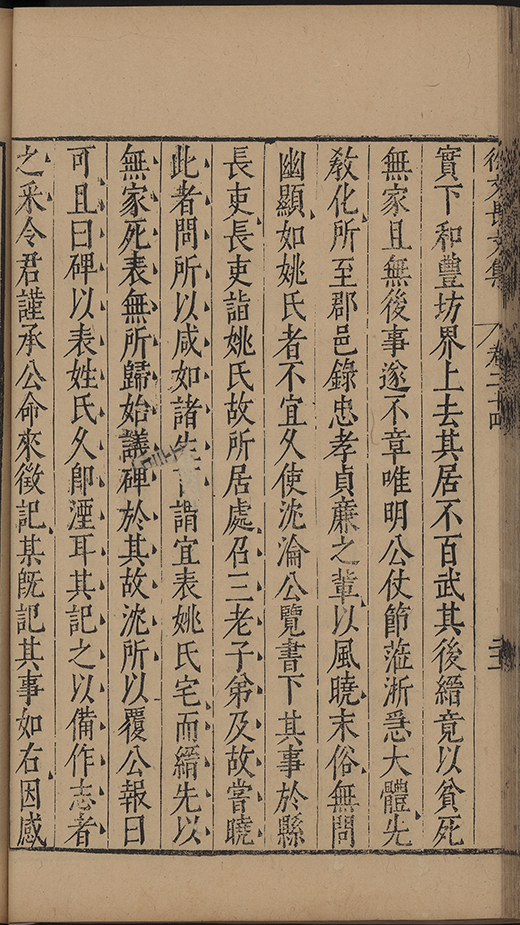 徐文長文集 卷二十四
實下和豐坊界上去其居不百武其後縉竟以貧死
無家且無後事遂不章唯明公仗節蒞浙急大體先
敎化所至郡邑錄忠孝貞廉之輩以風曉末俗無問
幽顯如姚氏者不宜久使沈淪公覽書下其事於縣
長吏長吏詣姚氏故所居處召三老子弟及故嘗曉
此者問所以咸如諸生言請宜表姚氏宅而縉先以
無家死表無所歸始議碑於其故沈所以覆公報曰
可且曰碑以表姓氏久卽湮耳其記之以備作志者
之釆令君謹承公命來徵記某旣記其事如右因感